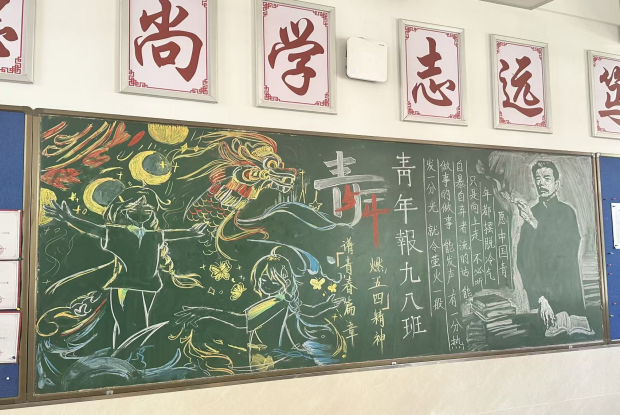 尚
学
志
远
青年
54
谱青春篇章
燃五四精神
青年報九八班
愿中国青
年都摆脱冷气
只是向上走不必听
自暴自弃者流的话 能
做事的做事 能发声 有一分热
发一分光 就令萤火一般